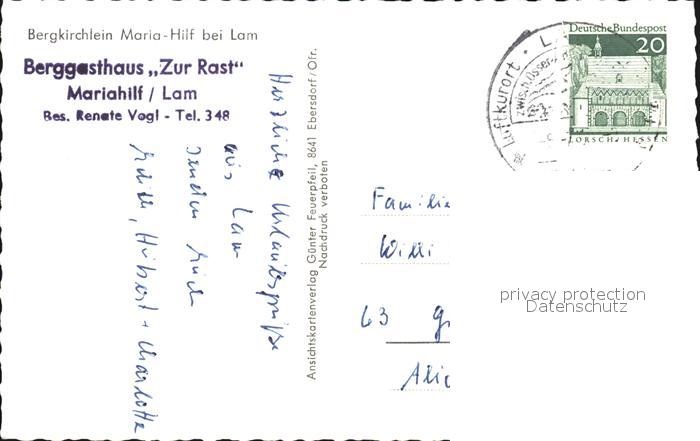 Bergkirchlein Maria-Hilf bei Lam
Berggasthaus „Zur Rast"
Mariahilf / Lam
Bes. Renate Vogl - Tel. 348
Herzliche Urlaubsgrüße
aus Lam
senden Euch
Hubert + Charlotte
Ansichtskartenverlag Günter Feuerpfeil, 8641 Ebersdorf/Ofr.
Nachdruck verboten
Deutsche Bundespost
20
LORSCH/HESSEN
Luftkurort
Familie
Willi
63
privacy protection
Datenschutz